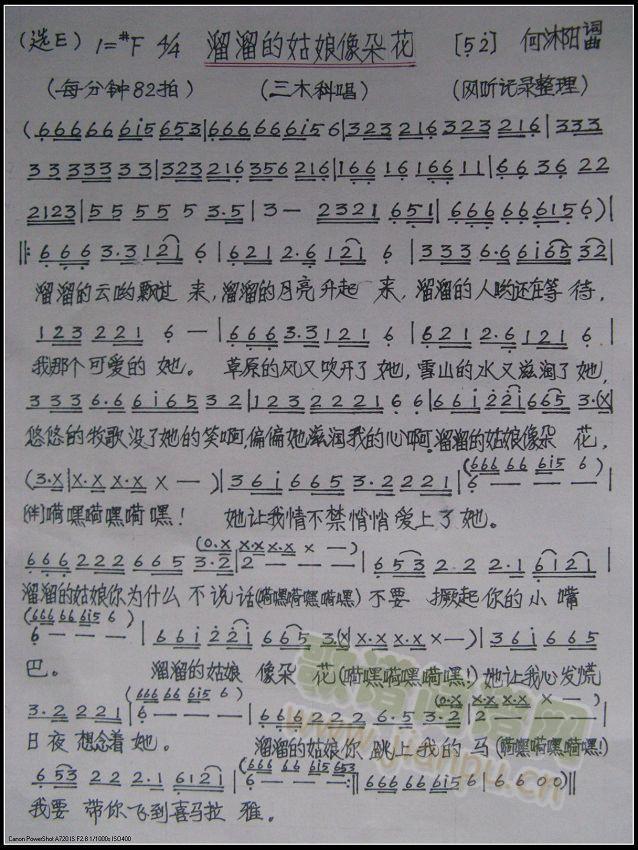 (选E) 1=#F 4/4 溜溜的姑娘像朵花 [5 2] 何沐阳 词曲
(每分钟82拍) (三木科唱) (网听记录整理)
(666666i5653|666666i56|323216323216|333
33333333|323216356216|1661616611|663622
2123|555553.5|3— 2321651|666666156)|
‖:6663.312i6|6212.61216|3336.66i6532|
溜溜的云哟飘过来,溜溜的月亮升起来,溜溜的人哟还在等待,
1232216—|6663.31216|6212.61216|
我那个可爱的她。草原的风又吹开了她,雪山的水又滋润了她,
3336.66i6532|1232222166|66i22i6653.(X|
悠悠的牧歌没了她的笑啊,偏偏她滋润我的心啊.溜溜的姑娘像朵花,
(3.X|X.XX.XX—)|36i6653.2221|6———
(伴)嗬嘿嗬嘿嗬嘿! 她让我情不禁悄悄爱上了她。
6662226653.2|2———|65322.16121|
溜溜的姑娘你为什么不说话(嗬嘿嗬嘿嗬嘿)不要撅起你的小嘴
6———|66i22i6653(X|X.XX.XX—)|36i665
巴。 溜溜的姑娘像朵花(嗬嘿嗬嘿嗬嘿!)她让我心发慌
3.2221|6———|6662226.53.2|2———|
日夜想念着她。 溜溜的姑娘你跳上我的马(嗬嘿嗬嘿嗬嘿!)
653222.16121|6———:‖666666i56|6600‖
我要带你飞到喜马拉雅。
www.jianpu.cn
Canon PowerShot A720 IS F2.8 1/1000s ISO400